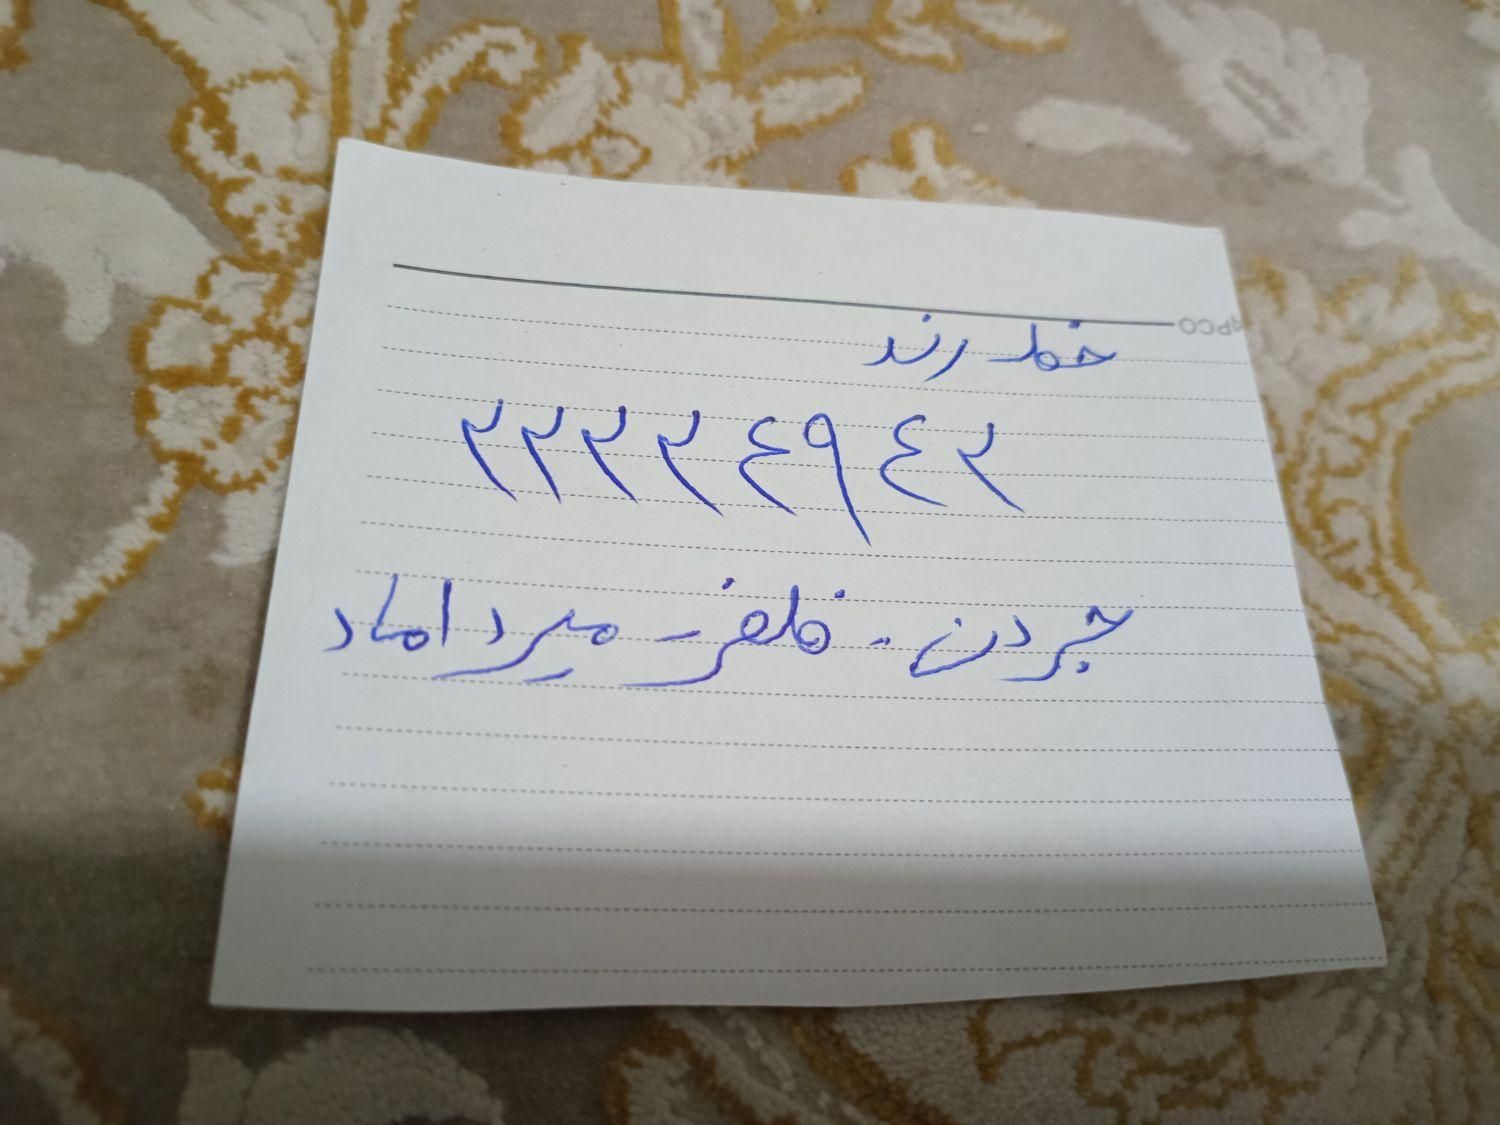 APCO
خط رند
۲۲۲۲٤۹٤۲
جردن - ظفر - میرداماد